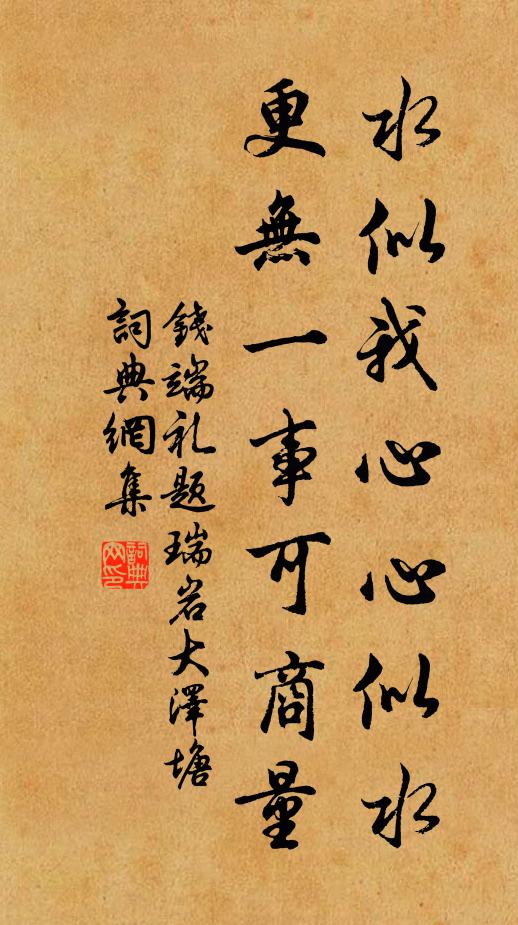 水似我心心似水
更無一事可商量
錢端礼題瑞岩大澤塘
詞典網集
詞典網印